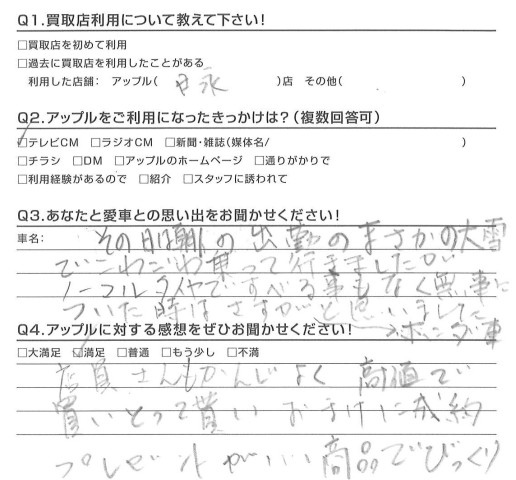 Q1.買取店利用について教えて下さい!
□買取店を初めて利用
□過去に買取店を利用したことがある
利用した店舗: アップル( 日永 )店 その他( )
Q2.アップルをご利用になったきっかけは?(複数回答可)
☑テレビCM □ラジオCM □新聞・雑誌(媒体名/ )
□チラシ □DM □アップルのホームページ □通りがかりで
□利用経験があるので □紹介 □スタッフに誘われて
Q3.あなたと愛車との思い出をお聞かせください!
車名: その日は朝の出勤のまさかの大雪
でこわごわ乗って行きましたが
ノーマルタイヤですべる事もなく無事に
ついた時はさすがと思いました
→ホンダ車
Q4.アップルに対する感想をぜひお聞かせください!
□大満足 ☑満足 □普通 □もう少し □不満
店員さんもかんじよく 高値で
買いとって貰い おまけに成約
プレゼントがいい商品でびっくり